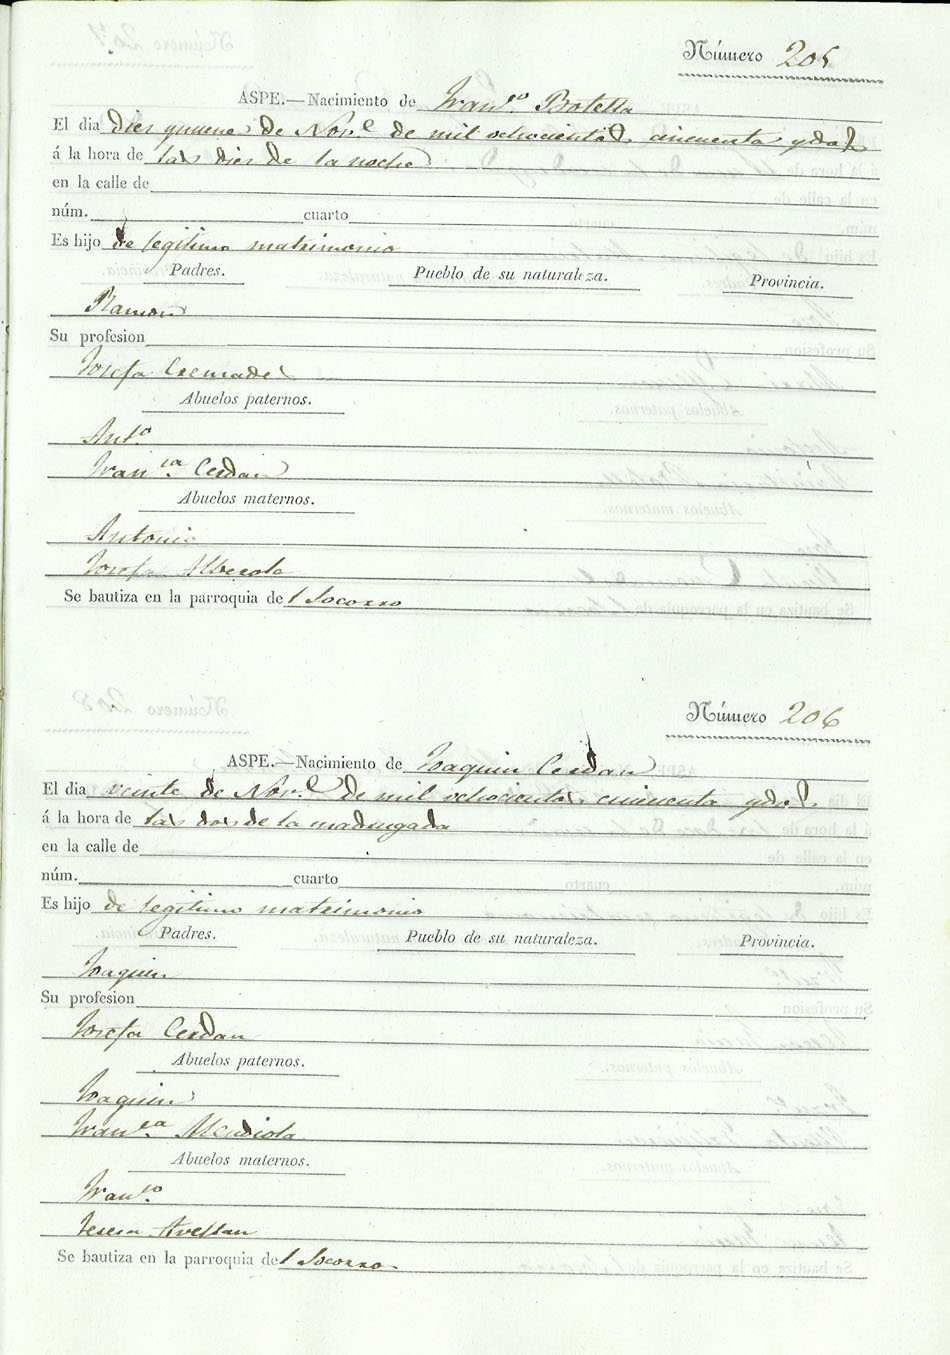 Número 205
ASPE.—Nacimiento de Franco Botella
El dia diez y nueve de Nove de mil ochocientos cincuenta y dos
á la hora de las diez de la noche
en la calle de
núm. cuarto
Es hijo de legitimo matrimonio
Padres. Pueblo de su naturaleza. Provincia.
Ramon
Su profesion
Josefa Cremades
Abuelos paternos.
Anto
Franca Cerdan
Abuelos maternos.
Antonio
Josefa Alberola
Se bautiza en la parroquia del Socorro
Número 206
ASPE.—Nacimiento de Joaquin Cerdan
El dia veinte de Nove de mil ochocientos cincuenta y dos
á la hora de las dos de la madrugada
en la calle de
núm. cuarto
Es hijo de legitimo matrimonio
Padres. Pueblo de su naturaleza. Provincia.
Joaquin
Su profesion
Josefa Cerdan
Abuelos paternos.
Joaquin
Franca Mendiola
Abuelos maternos.
Franco
Teresa Avellan
Se bautiza en la parroquia del Socorro